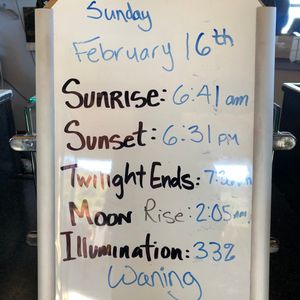 Sunday
February 16th
Sunrise: 6:41 am
Sunset: 6:31 PM
Twilight Ends:
Moon Rise: 2:05 am
Illumination: 33%
Waning